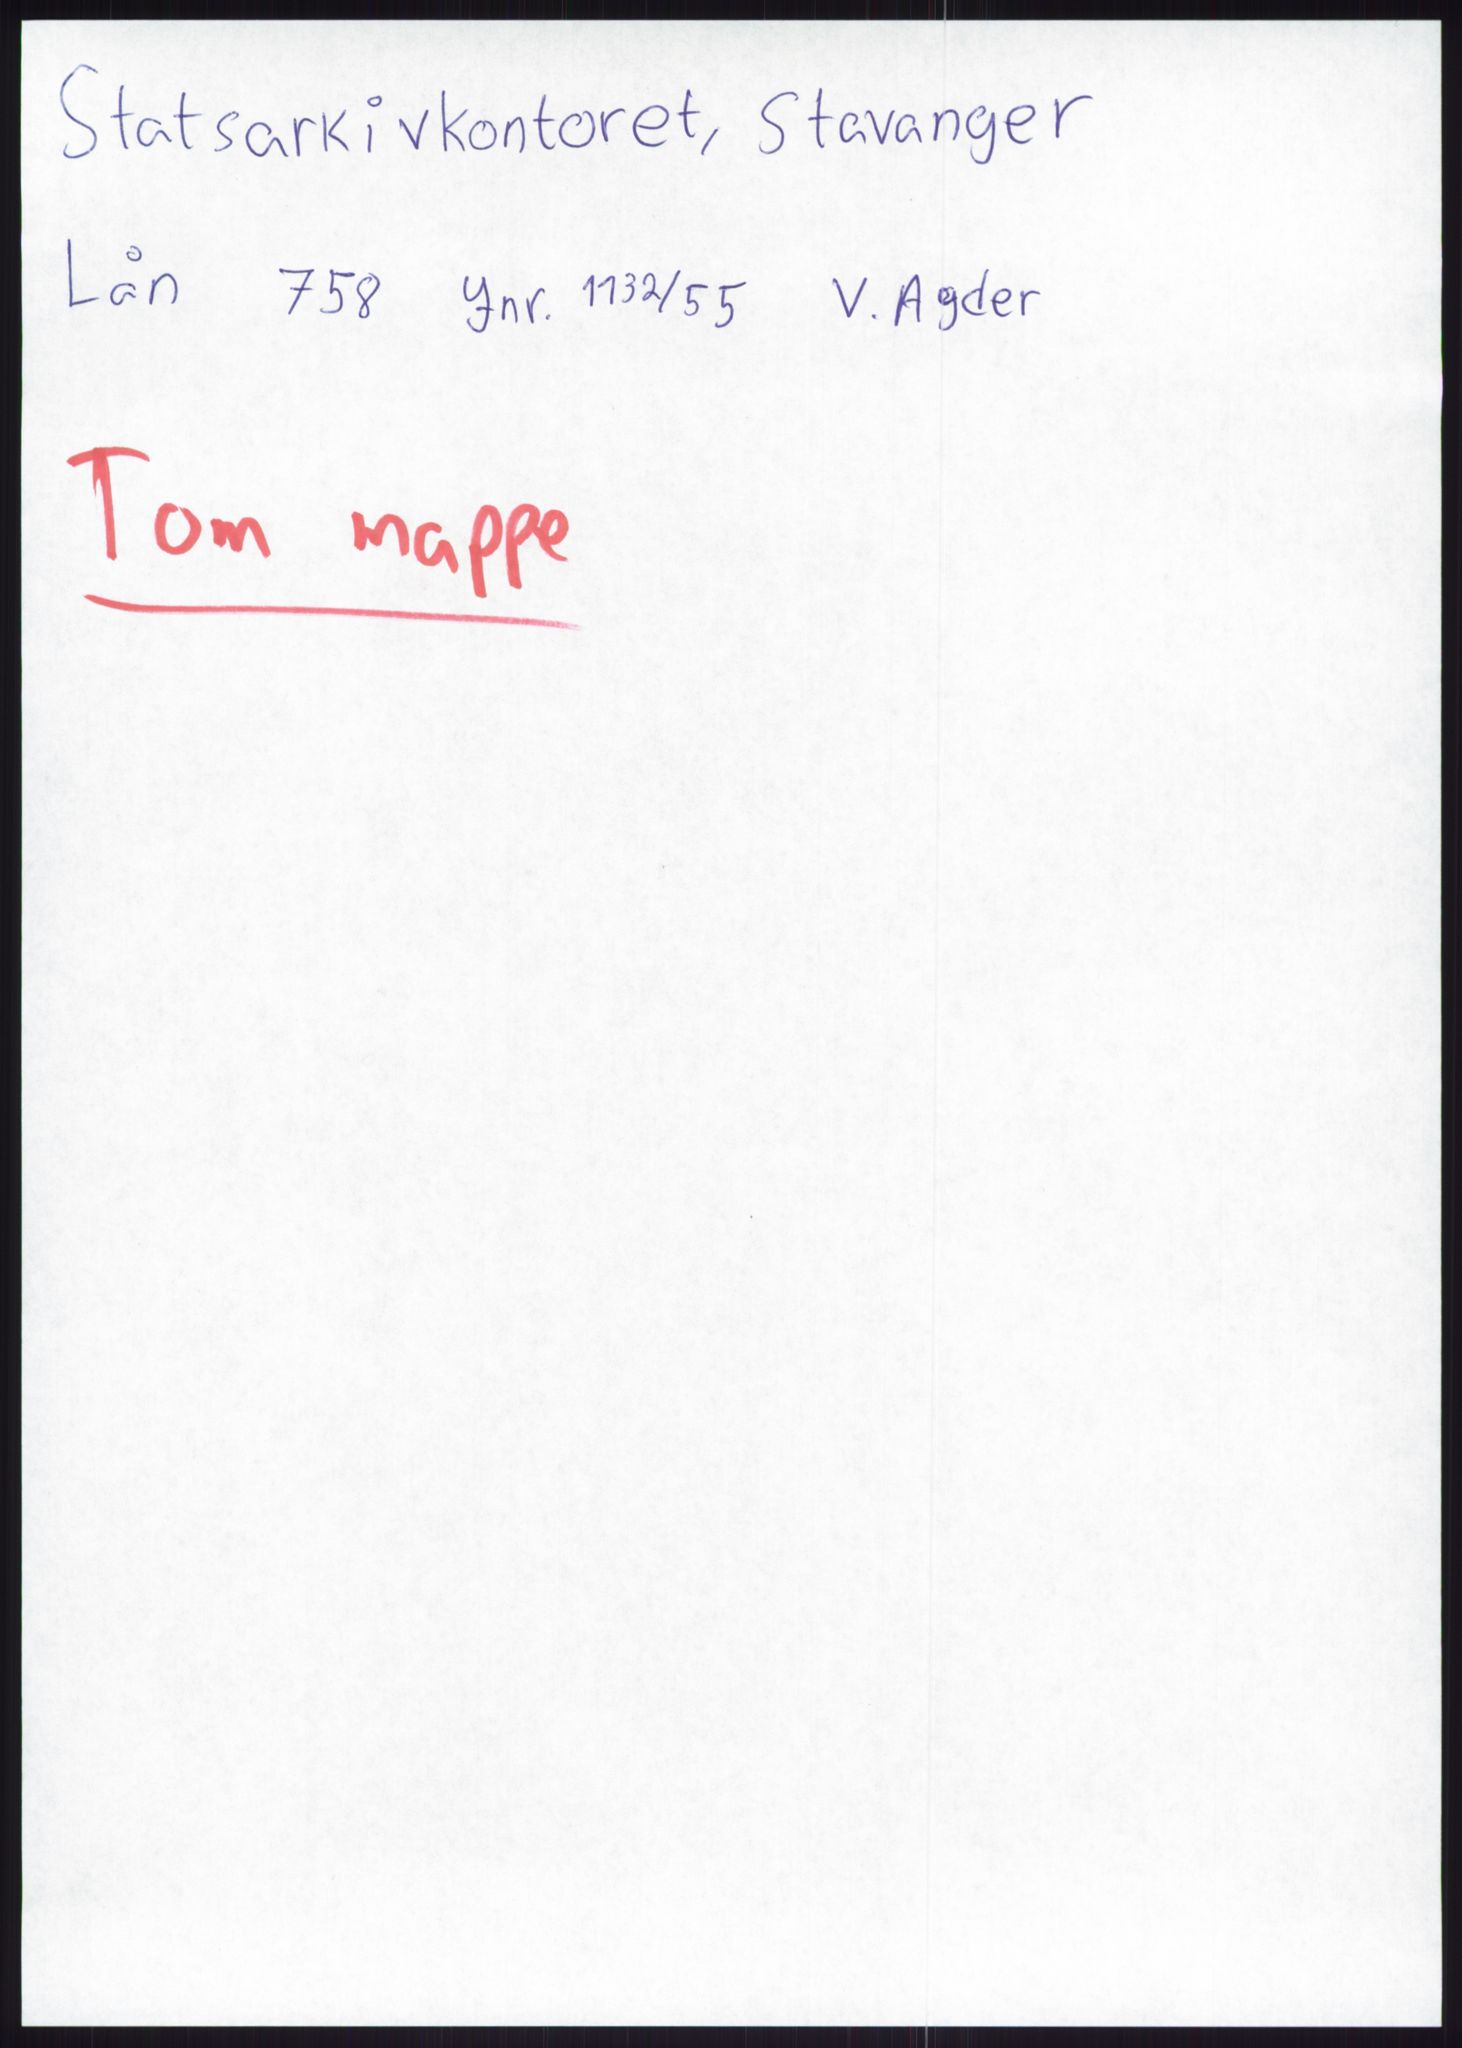 Statsarkivkontoret, Stavanger
Lån 758 Ynr. 1132/55 V. Agder
Tom mappe